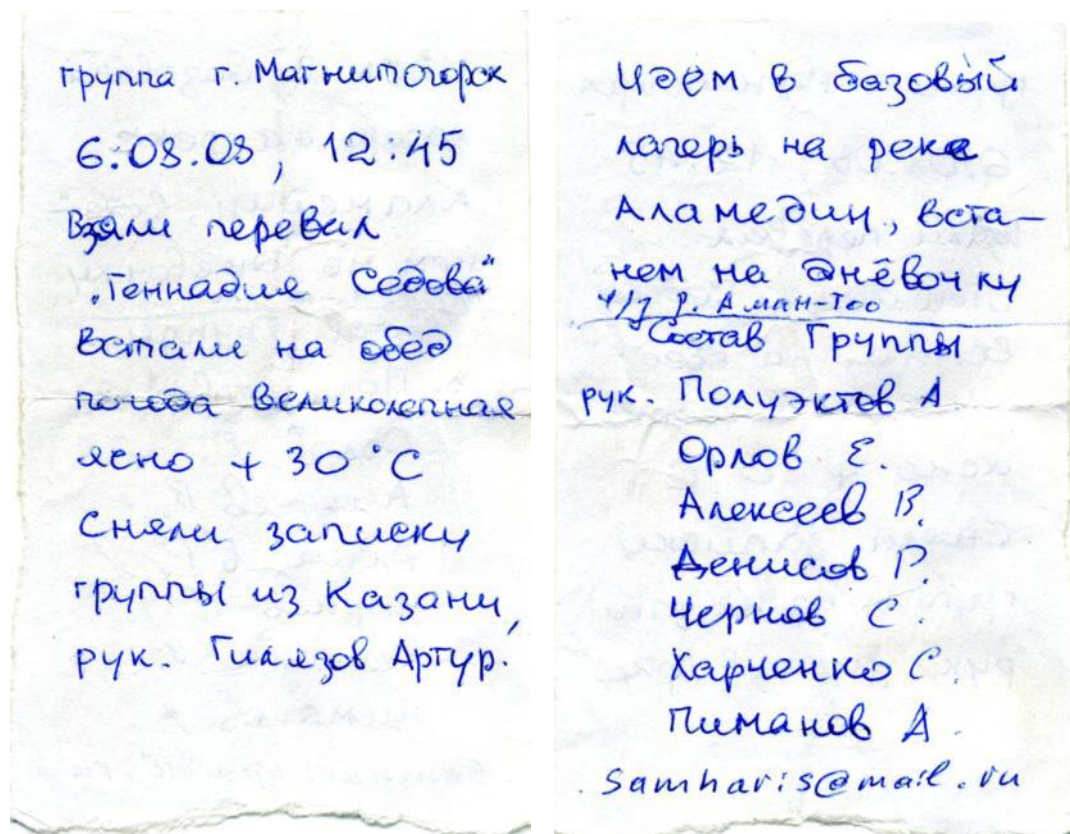 группа г. Магнитогорск
6.08.08, 12:45
Взяли перевал
"Геннадия Седова"
Встали на обед
погода великолепная
ясно +30°С
Сняли записку
группы из Казани,
рук. Гилязов Артур.
Идём в базовый
лагерь на реке
Аламедин, вста-
нем на днёвочку
ч/з р. Аман-Тоо
Состав Группы
рук. Полуэктов А
Орлов Е.
Алексеев В.
Денисов Р.
Чернов С.
Харченко С.
Пиманов А.
samharis@mail.ru